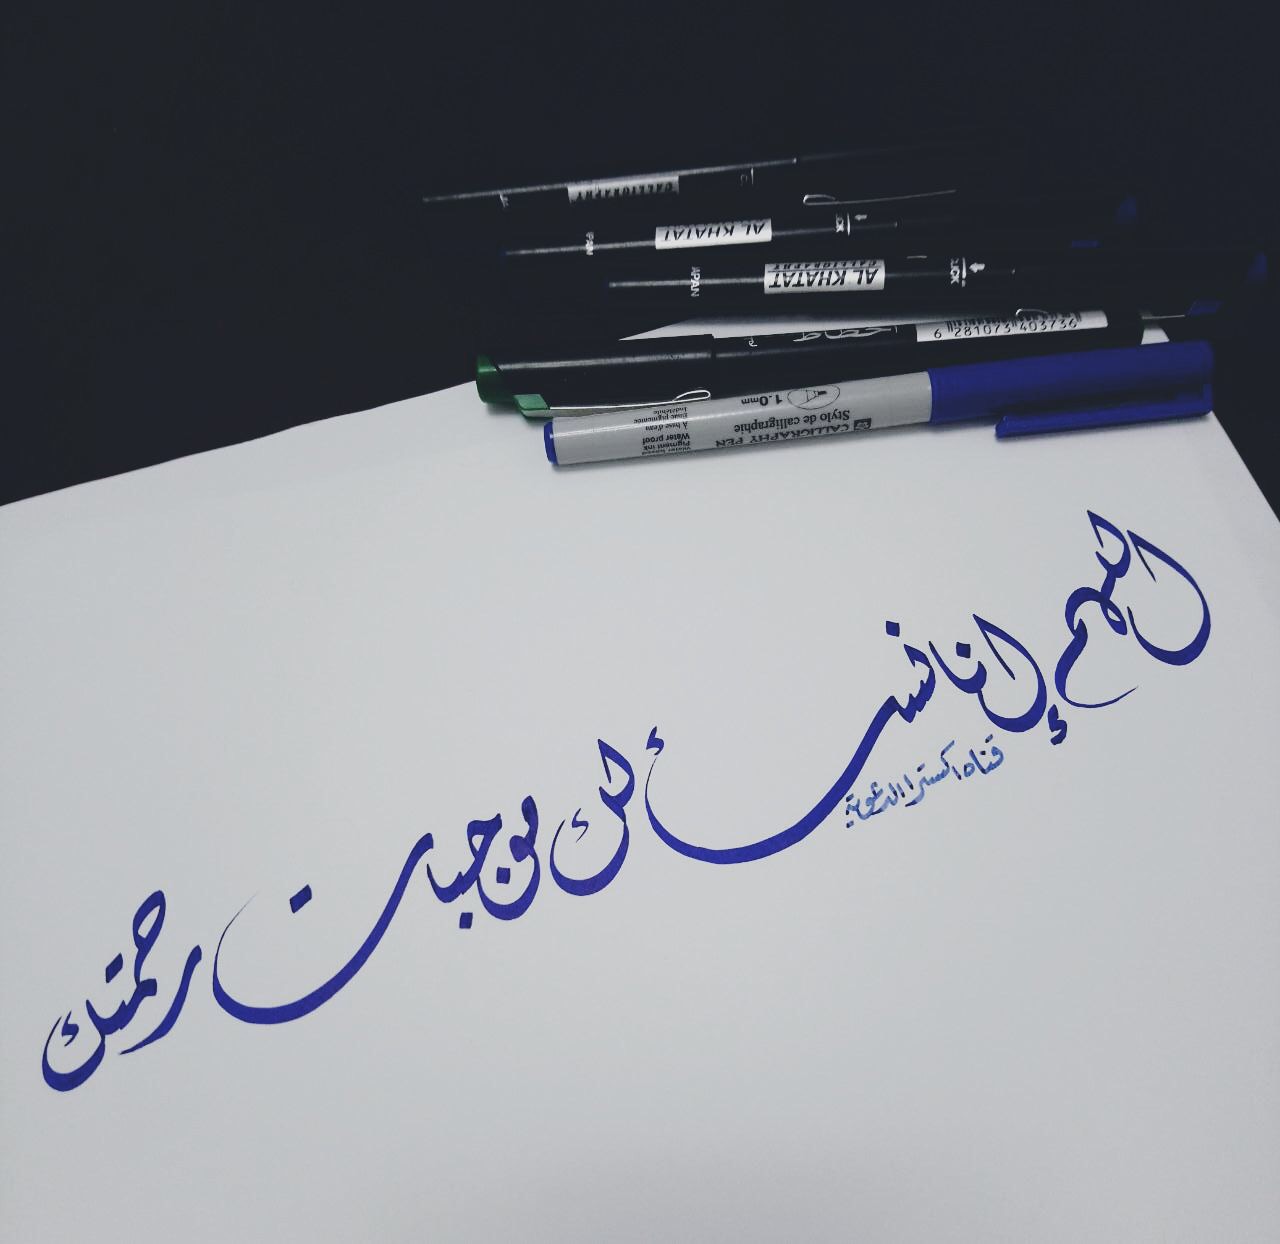 CALLIGRAPHY
AL KHATAT
PAN
AL KHATAT
CALLIGRAPHY
JAPAN
6 281073 403736
1.0mm
CALLIGRAPHY PEN
Stylo de calligraphie
Water based
Pigment ink
Water proof
À base d'eau
Encre pigmentée
Indélébile
اللهم إنا نسألك موجبات رحمتك
قناه اكسترا الدعوية